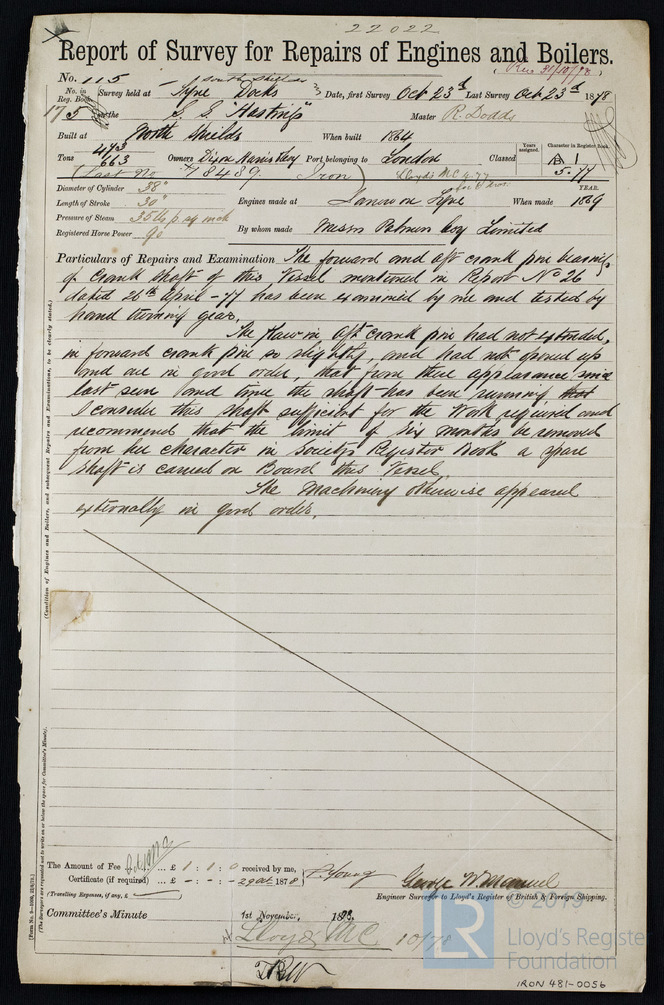 22022
Report of Survey for Repairs of Engines and Boilers.
(Rec 31/10/78)
No. 115 South Shields
No. in Reg. Book. Survey held at Tyne Docks Date, first Survey Oct 23rd Last Survey Oct 23rd 1878
175 on the S.S. "Hastings" Master R. Dodds
Built at North Shields When built 1864
Tons 473 663 Owners Dixon Harris & Coy Port belonging to London Classed Years assigned. Character in Register Book A 1 5.77
(Last No 78489. Iron) Lloyd's MC 4.77
Diameter of Cylinder 38" YEAR.
Length of Stroke 30" Engines made at Jarrow on Tyne When made 1869
Pressure of Steam 35 lbs p. sq inch
Registered Horse Power 90 By whom made Messrs Palmers Coy Limited
Particulars of Repairs and Examination The forward and aft crank pin bearings
of crank shaft of this Vessel mentioned in Report No 26
dated 26th April -77 has been examined by me and tested by
hand turning gear.
The flaw in aft crank pin had not extended,
in forward crank pin so slightly, and had not opened up
and are in good order, that from there appearance since
last seen and time the shaft has been running that
I consider this shaft sufficient for the work required and
recommend that the limit of six months be removed
from her character in Society's Register Book a spare
shaft is carried on Board this Vessel.
The Machinery otherwise appeared
externally in good order.
(Condition of Engines and Boilers, and subsequent Repairs and Examinations, to be clearly stated.)
(The Surveyors are requested not to write on or below the space for Committee's Minute).
[Form No. 9—1000, 22/8/78.]
The Amount of Fee ... £ 1 : 1 : 0 received by me,
Certificate (if required) ... £ - : - : - 29 Oct 1878 R. Young
(Travelling Expenses, if any, £
George W. Manuel
Engineer Surveyor to Lloyd's Register of British & Foreign Shipping.
Committee's Minute 1st November, 1878.
+ Lloyds MC 10/78
© 2019
LR
Lloyd's Register
Foundation
IRON 481-0056